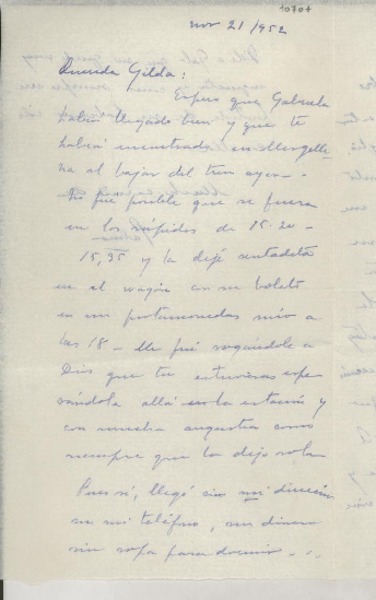 10704
nov 21/952
Querida Gilda:
Espero que Gabriela
habrá llegado bien y que te
habrá encontrado en
na al bajar del tren ayer.
No fue posible que se fuera
en los rápidos de 15.20 -
15,35 y la dejé sentadita
en el wagón con su boleto
en un portamonedas mío a
las 18 - Me fui rogándole a
Dios que tu estuvieras espe
rándola allá en la estación y
con mucha angustia como
siempre que la dejo sola
Pues sí, llegó sin mi dirección
ni mi teléfono, sin dinero
sin ropa para dormir...